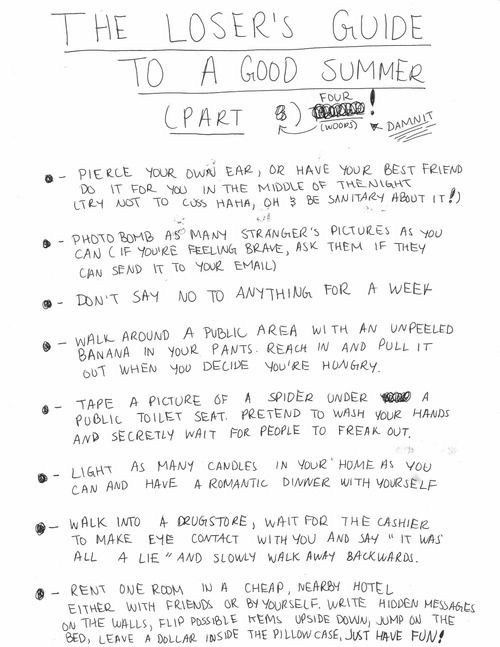 THE LOSER'S GUIDE
TO A GOOD SUMMER
(PART 8) FOUR!
(WOOPS) DAMNIT
- PIERCE YOUR OWN EAR, OR HAVE YOUR BEST FRIEND
DO IT FOR YOU IN THE MIDDLE OF THE NIGHT
(TRY NOT TO CUSS HAHA, OH & BE SANITARY ABOUT IT!)
- PHOTOBOMB AS MANY STRANGER'S PICTURES AS YOU
CAN (IF YOU'RE FEELING BRAVE, ASK THEM IF THEY
CAN SEND IT TO YOUR EMAIL)
- DON'T SAY NO TO ANYTHING FOR A WEEK
- WALK AROUND A PUBLIC AREA WITH AN UNPEELED
BANANA IN YOUR PANTS. REACH IN AND PULL IT
OUT WHEN YOU DECIDE YOU'RE HUNGRY.
- TAPE A PICTURE OF A SPIDER UNDER A
PUBLIC TOILET SEAT. PRETEND TO WASH YOUR HANDS
AND SECRETLY WAIT FOR PEOPLE TO FREAK OUT.
- LIGHT AS MANY CANDLES IN YOUR HOME AS YOU
CAN AND HAVE A ROMANTIC DINNER WITH YOURSELF
- WALK INTO A DRUGSTORE, WAIT FOR THE CASHIER
TO MAKE EYE CONTACT WITH YOU AND SAY "IT WAS
ALL A LIE" AND SLOWLY WALK AWAY BACKWARDS.
- RENT ONE ROOM IN A CHEAP, NEARBY HOTEL
EITHER WITH FRIENDS OR BY YOURSELF. WRITE HIDDEN MESSAGES
ON THE WALLS, FLIP POSSIBLE ITEMS UPSIDE DOWN, JUMP ON THE
BED, LEAVE A DOLLAR INSIDE THE PILLOW CASE, JUST HAVE FUN!